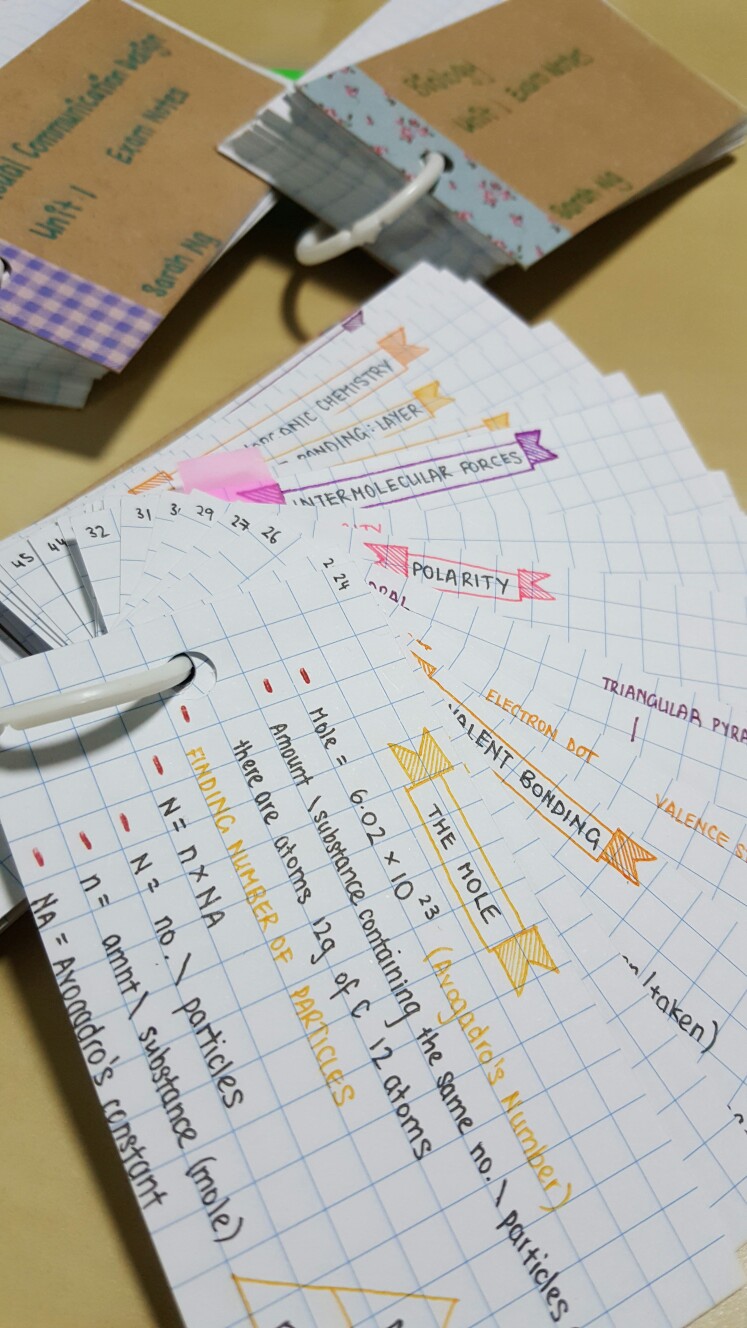 Communication Design
Unit 1 Exam Notes
Sarah Ng
Biology
Unit 1 Exam Notes
Sarah Ng
CHEMISTRY
BONDING: LAYER
INTERMOLECULAR FORCES
45
44
32
31
29
27
26
24
POLARITY
TRIANGULAR
ELECTRON DOT
VALENCE
BONDING
taken)
THE MOLE
- Mole = 6.02 × 10 23 (Avogadro's Number)
- Amount \ substance containing the same no. \ particles
there are atoms 12g of C 12 atoms
- FINDING NUMBER OF PARTICLES
- N = n × NA
- N = no. \ particles
- n = amnt \ substance (mole)
- NA = Avogadro's constant